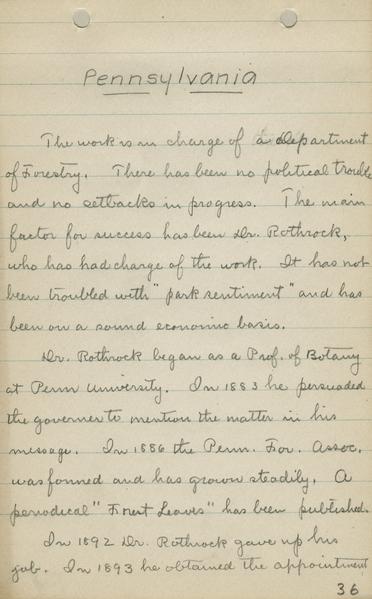 Pennsylvania
The work is in charge of a department
of Forestry. There has been no political trouble
and no setbacks in progress. The main
factor for success has been Dr. Rothrock,
who has had charge of the work. It has not
been troubled with "park sentiment" and has
been on a sound economic basis.
Dr. Rothrock began as a Prof. of Botany
at Penn University. In 1883 he persuaded
the governer to mention the matter in his
message. In 1886 the Penn. For. Assoc.
was formed and has grown steadily. A
periodical "Forest Leaves" has been published.
In 1892 Dr. Rothrock gave up his
job. In 1893 he obtained the appointment
36